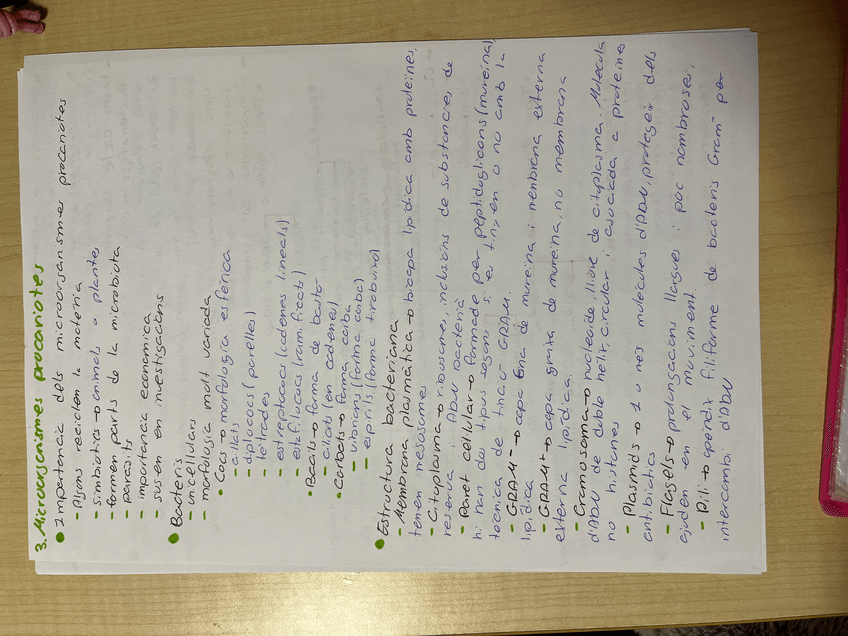 3. Microorganismes procariotes
• Importància dels microorganismes procariotes
- Alguns reciclen la matèria
- Simbiòtics → animals o plantes
- formen parts de la microbiota
- paràsits
- importància econòmica
- susen en investigacions
• Bacteris
- unicel·lulars
- morfologia molt variada
• Cocs → morfologia esfèrica
- aïllats
- diplococs (parelles)
- tetrades
- estreptococs (cadenes lineals)
- estafilococs (ramificats)
• Bacils → forma de bastó
- aïllats (en cadenes)
• Corbats → forma corba
- vibrions (forma corba)
- espirils (forma tirabuixó)
• Estructura bacteriana
- Membrana plasmàtica → bicapa lipídica amb proteïnes,
tenen mesosomes
- Citoplasma → ribosomes, inclusions de substàncies de
reserva i ADN bacterià
- Paret cel·lular → formada per peptidoglicans (mureïna),
hi han dos tipus segons si es tinyen o no amb la
tècnica de tinció GRAM.
- GRAM⁻ → capa fina de mureïna i membrana externa
lipídica
- GRAM⁺ → capa gruixa de mureïna, no membrana
externa lipídica.
- Cromosoma → nucleoide, lliure de citoplasma. Molècula
d'ADN de doble hèlix, circular i associada a proteïnes
no histones
- Plasmids → 1 o més molècules d'ADN, protegeix dels
antibiòtics
- Flagels → prolongacions llargues i poc nombroses,
ajuden en el moviment
- Pili → apèndix filiforme de bacteris Gram⁻ per
intercanvi d'ADN